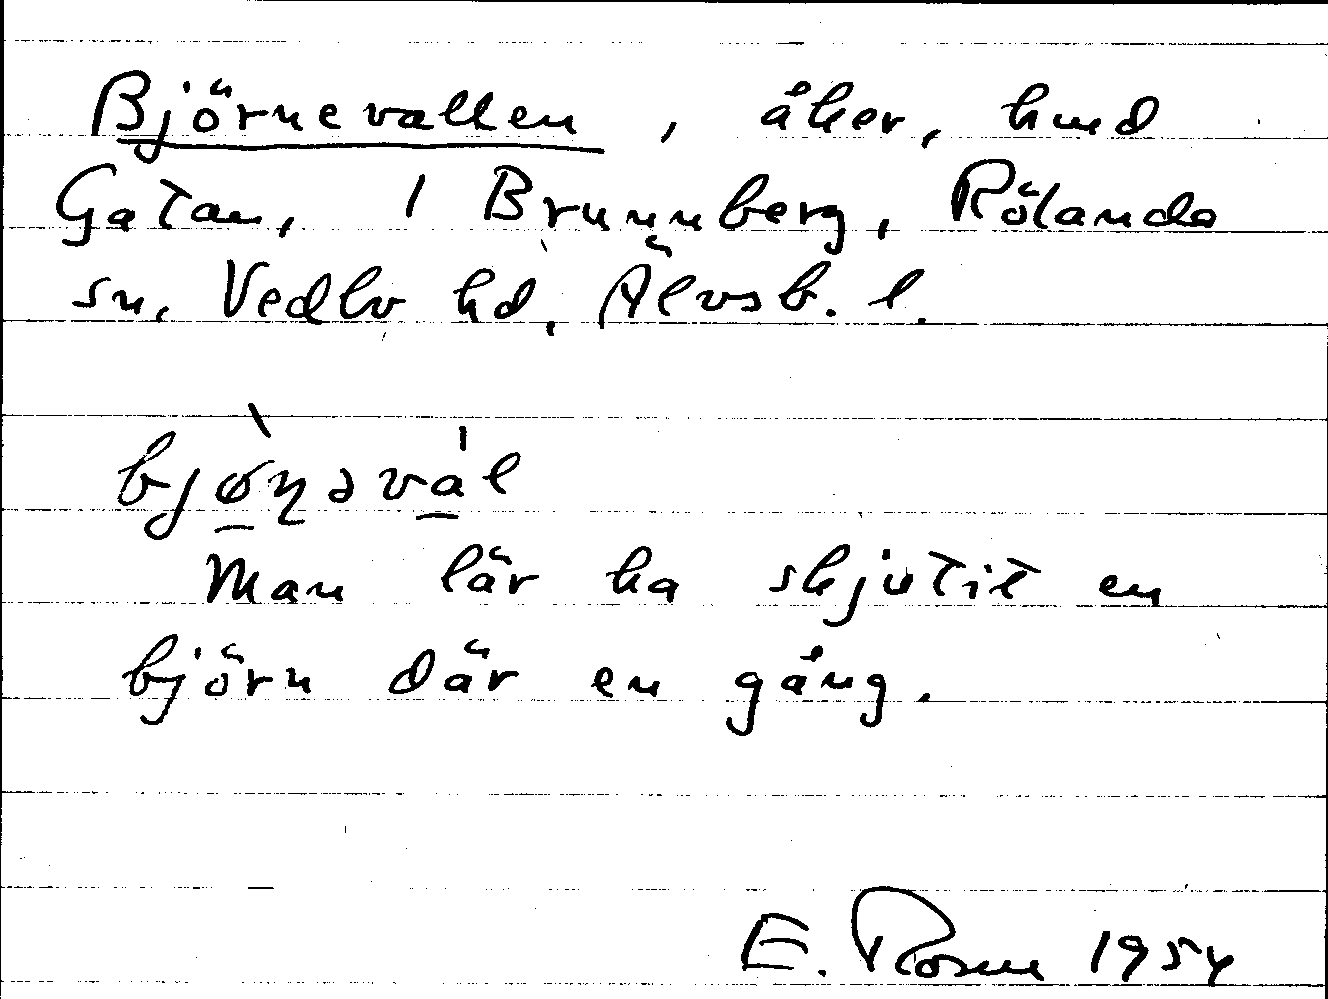 Björnevallen, åker, hmd
Gatan, 1 Brunnberg, Rölanda
sn, Vedbo hd, Älvsb. l.
bjø̀ɳəvál
Man lär ha skjutit en
björn där en gång.
E. Rosen 1954